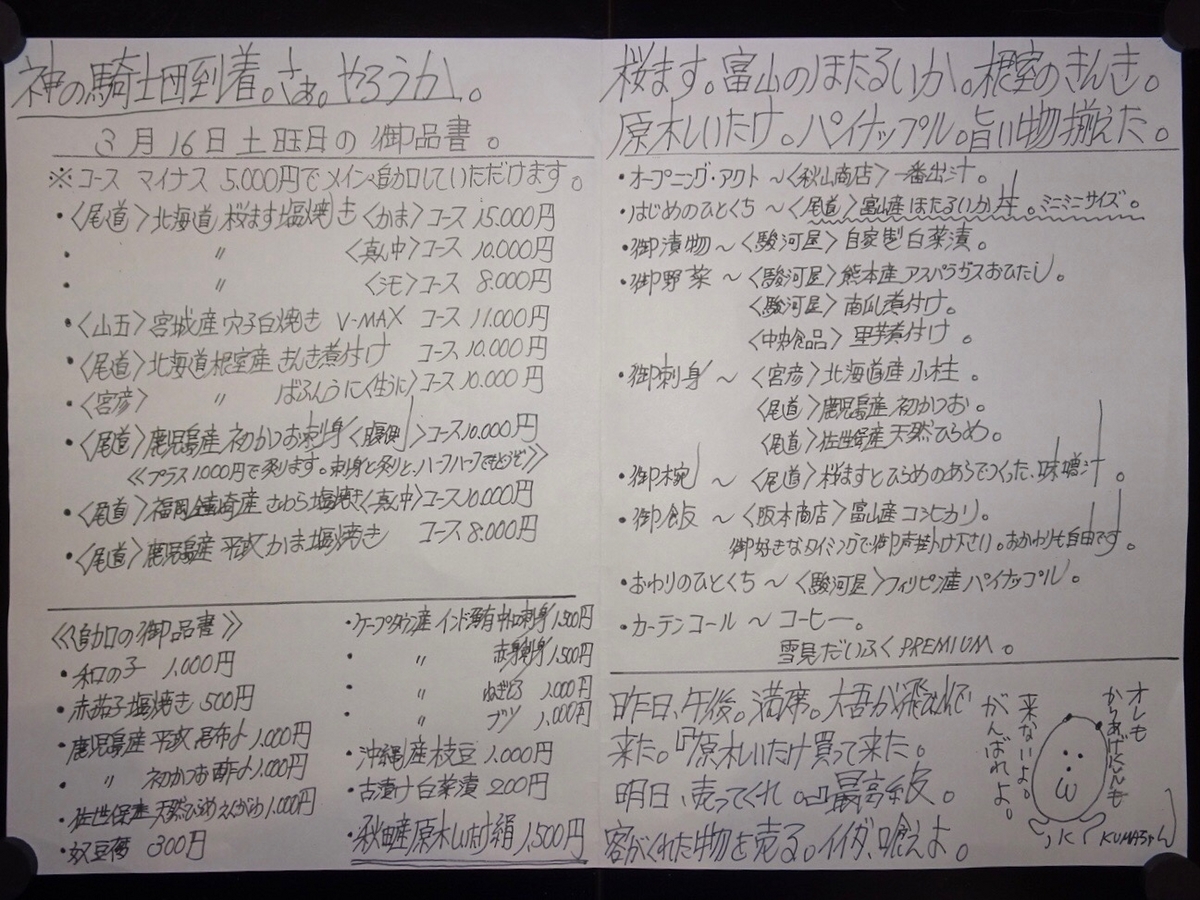 神の騎士団到着。さぁ。やろうか。
3月16日土旺日の御品書。
※コース マイナス 5.000円でメイン追加していただけます。
・〈尾道〉北海道 桜ます塩焼き〈かま〉コース 15.000円
・ 〃 〈真ん中〉コース 10.000円
・ 〃 〈シモ〉コース 8.000円
・〈山五〉宮城産 穴子白焼き V-MAX コース 11.000円
・〈尾道〉北海道根室産 きんき煮付け コース 10.000円
・〈宮彦〉 〃 ばふんうに〈生うに〉コース 10.000円
・〈尾道〉鹿児島産 初かつお刺身〈腹側〉コース10.000円
《プラス1.000円で炙ります。刺身と炙りと、ハーフハーフでもどうぞ》
・〈尾道〉福岡鐘崎産 さわら塩焼き〈真ん中〉コース10.000円
・〈尾道〉鹿児島産 平政 かま塩焼き コース 8.000円
《追加の御品書》
・和の子 1.000円
・赤茄子塩焼き 500円
・鹿児島産 平政 昆布〆 1.000円
・ 〃 初かつお酢〆 1.000円
・佐世保産 天然ひらめえんがわ 1.000円
・奴豆腐 300円
・ケープタウン産 インド鮪 中トロ刺身 1,500円
・ 〃 赤身刺身 1,500円
・ 〃 ねぎとろ 1.000円
・ 〃 ブツ 1.000円
・沖縄産枝豆 1.000円
・古漬け白菜漬 200円
・秋田産原木しいたけ絹 1,500円
桜ます。富山のほたるいか。根室のきんき。
原木しいたけ。パイナップル。旨い物揃えた。
・オープニング・アクト ～〈秋山商店〉一番出汁。
・はじめのひとくち ～〈尾道〉富山産 ほたるいか丼。ミニミニサイズ。
・御漬物 ～〈駿河屋〉自家製白菜漬。
・御野菜 ～〈駿河屋〉熊本産 アスパラガスおひたし。
〈駿河屋〉南瓜煮付け。
〈中央食品〉里芋煮付け。
・御刺身 ～〈宮彦〉北海道産小柱。
〈尾道〉鹿児島産 初かつお。
〈尾道〉佐世保産 天然ひらめ。
・御椀 ～〈尾道〉桜ますとひらめのあらでつくった、味噌汁。
・御飯 ～〈阪本商店〉富山産 コシヒカリ。
御好きなタイミングで御声掛け下さい。おかわりも自由です。
・おわりのひとくち ～〈駿河屋〉フィリピン産 パイナップル。
・カーテンコール ～ コーヒー。
雪見だいふく PREMIUM。
昨日、午後。満席。大吾が飛込んで
来た。『原木しいたけ買って来た。
明日、売ってくれ。』最高級。
客がくれた物を売る。イイダ、喰えよ。
オレも
からあげくんも
来ないよ。
がんばれよ。
KUMAちゃん